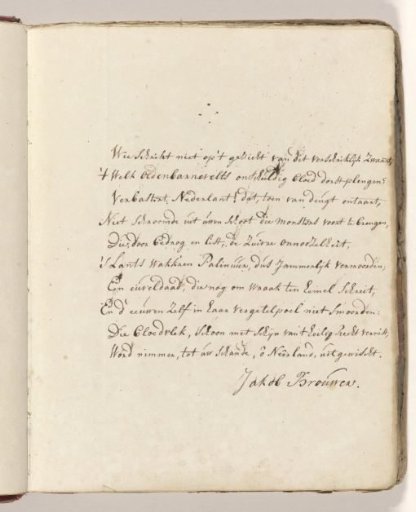 Wie schrikt niet op 't gezicht van dit verschriklijk Zwaard,
't Welk Oldenbarnevelts onschuldig bloed dorst plengen?
Verbastert Nederlant! dat, toen van deugt ontaart,
Niet schroomde uit uwen schoot die monsters voort te brengen,
Die, door bedrog en list, de Zuivre onnozelheit,
's Lants wakkren Palemuur, dus jammerlijk vermoordden;
Een euveldaad, die nog om wraak ten Hemel schreit,
En d' eeuwen zelf in haar vergetelpoel niet smoorden.
Die bloedvlek, schoon met schijn van 't heilig Recht vernist,
Word nimmer, tot uw schande, ô Neêrland, uitgewischt.
Jakob Brouwer.